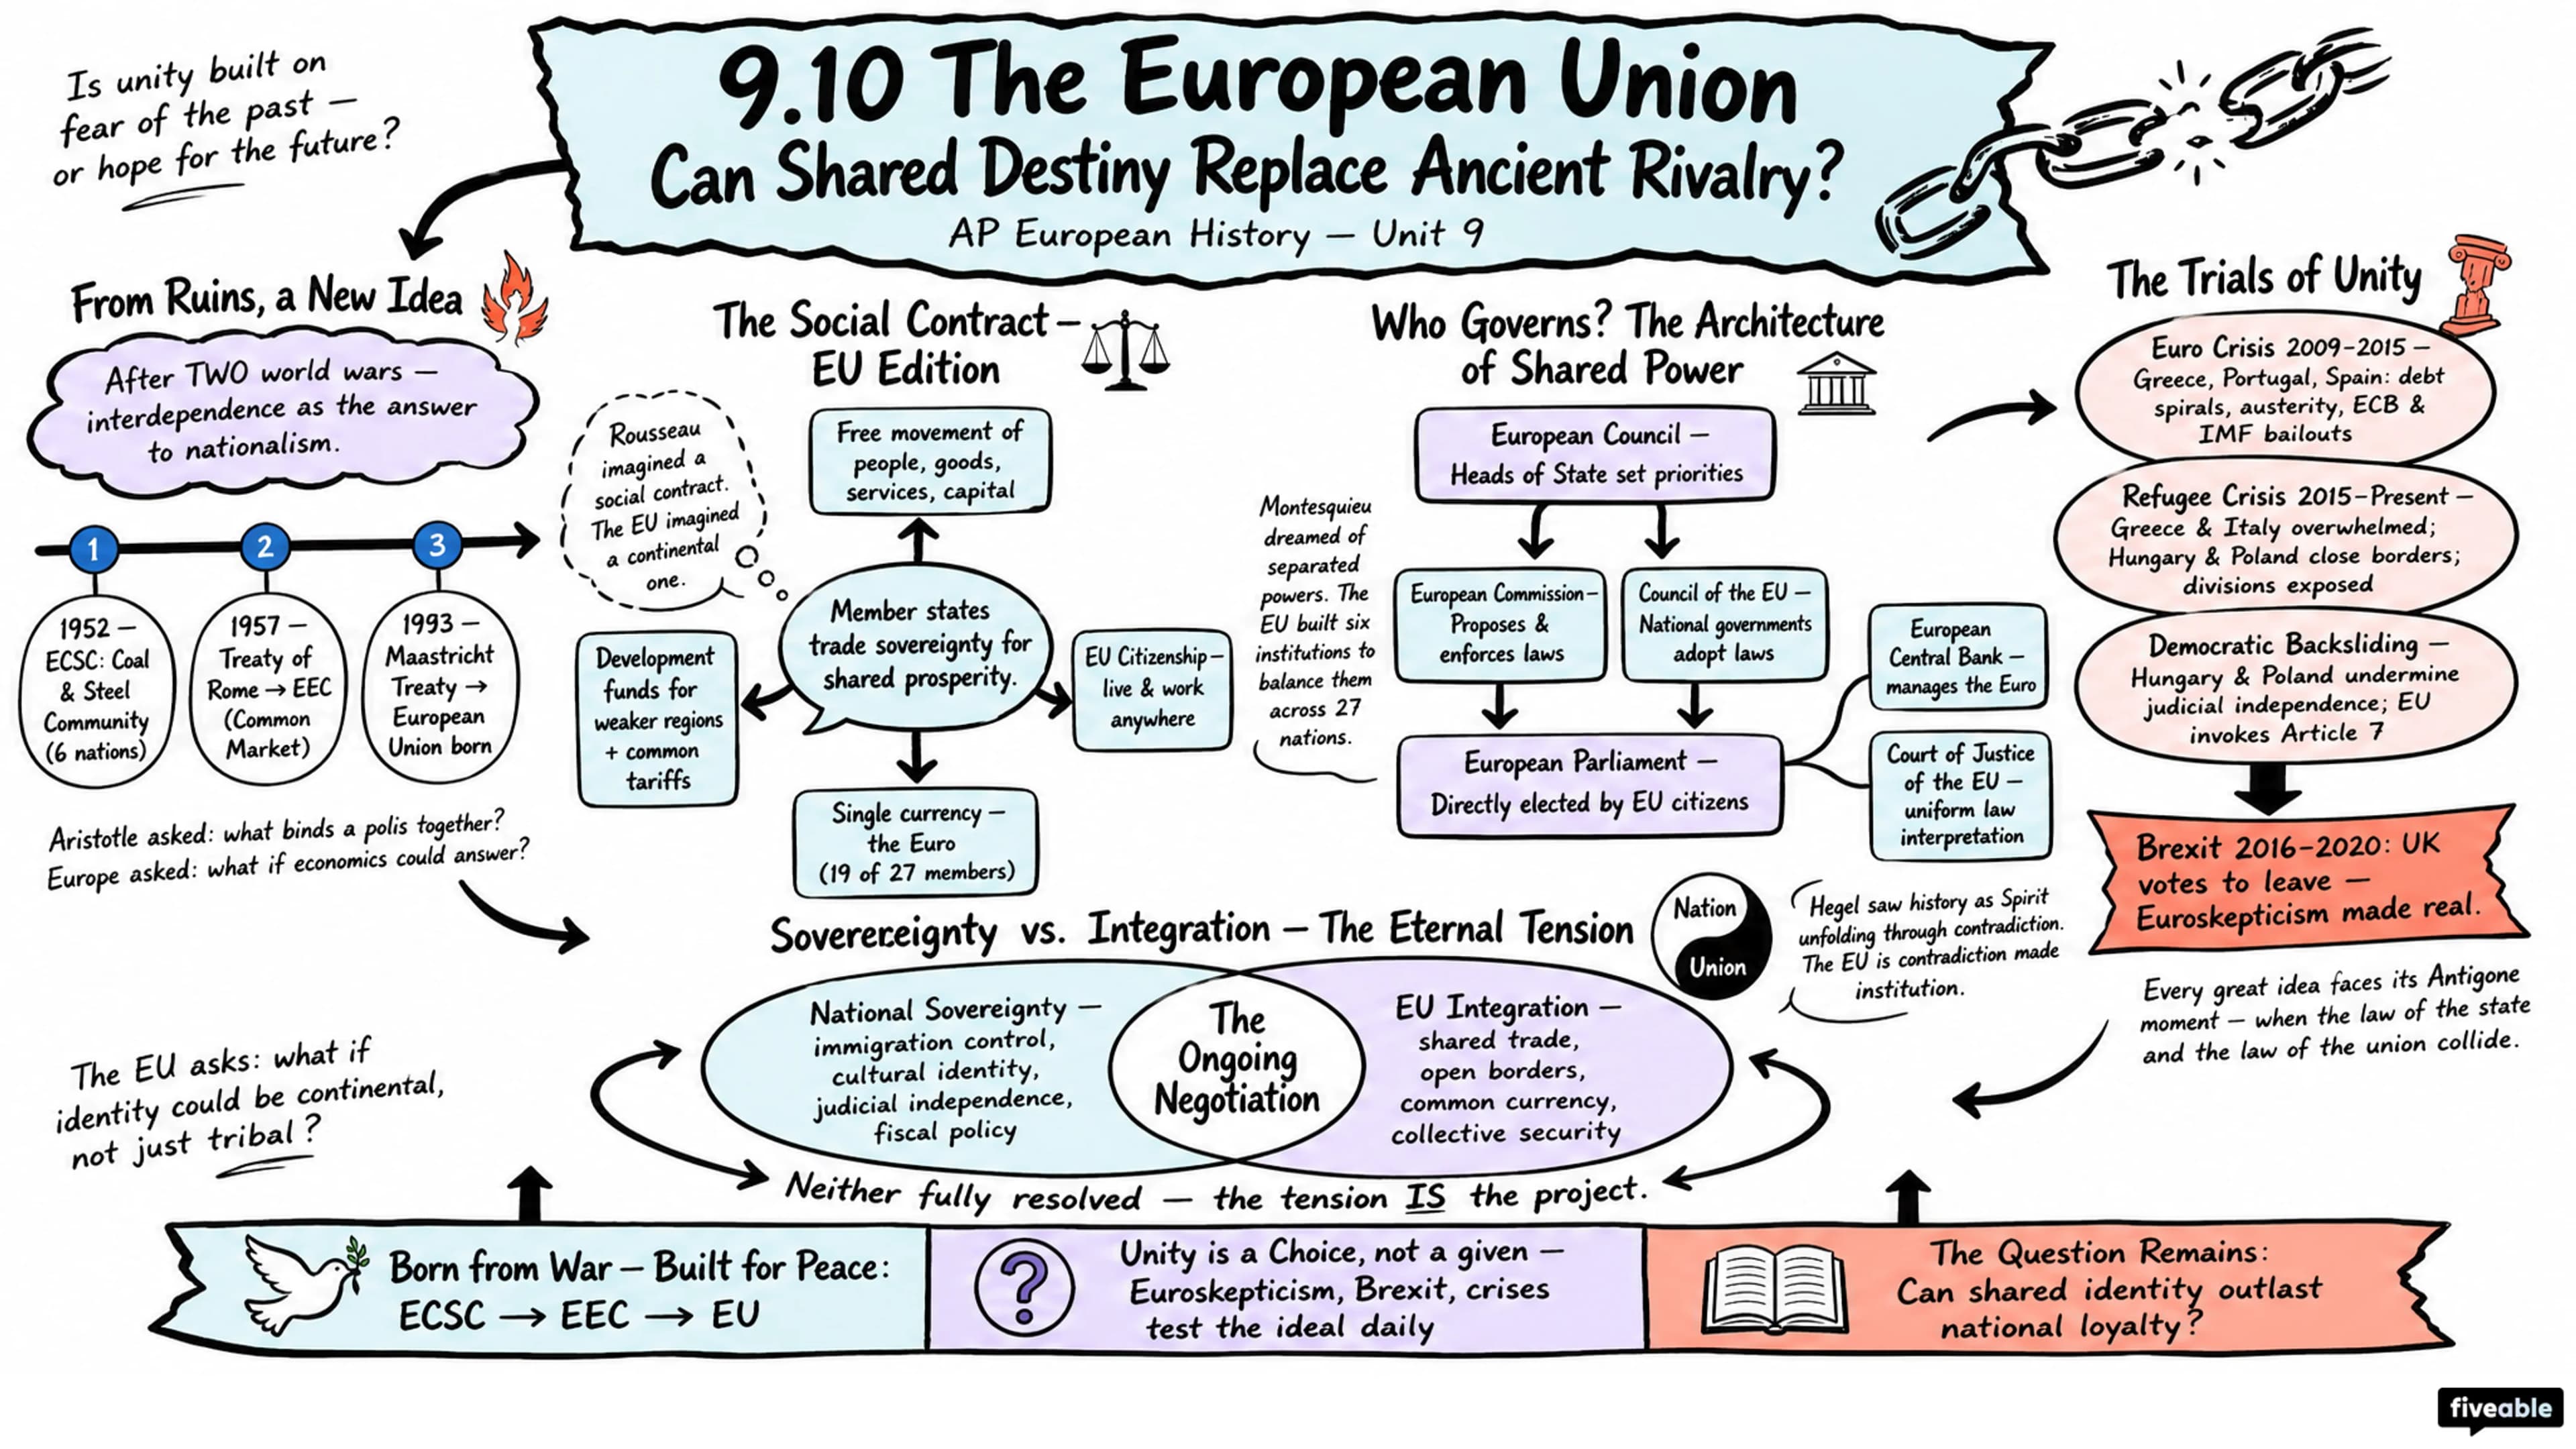 9.10 The European Union
Can Shared Destiny Replace Ancient Rivalry?
AP European History — Unit 9
Is unity built on
fear of the past —
or hope for the future?
From Ruins, a New Idea
After TWO world wars —
interdependence as the answer
to nationalism.
1
2
3
1952 —
ECSC: Coal
& Steel
Community
(6 nations)
1957 —
Treaty of
Rome → EEC
(Common
Market)
1993 —
Maastricht
Treaty →
European
Union born
Aristotle asked: what binds a polis together?
Europe asked: what if economics could answer?
The Social Contract —
EU Edition
Rousseau
imagined a
social contract.
The EU imagined
a continental
one.
Free movement of
people, goods,
services, capital
Member states
trade sovereignty for
shared prosperity.
Development
funds for
weaker regions
+ common
tariffs
EU Citizenship —
live & work
anywhere
Single currency —
the Euro
(19 of 27 members)
Who Governs? The Architecture
of Shared Power
Montesquieu
dreamed of
separated
powers. The
EU built six
institutions to
balance them
across 27
nations.
European Council —
Heads of State set priorities
European Commission —
Proposes &
enforces laws
Council of the EU —
National governments
adopt laws
European Parliament —
Directly elected by EU citizens
European
Central Bank —
manages the Euro
Court of Justice
of the EU —
uniform law
interpretation
The Trials of Unity
Euro Crisis 2009-2015 —
Greece, Portugal, Spain: debt
spirals, austerity, ECB &
IMF bailouts
Refugee Crisis 2015-Present —
Greece & Italy overwhelmed;
Hungary & Poland close borders;
divisions exposed
Democratic Backsliding —
Hungary & Poland undermine
judicial independence; EU
invokes Article 7
Brexit 2016-2020: UK
votes to leave —
Euroskepticism made real.
Every great idea faces its Antigone
moment — when the law of the state
and the law of the union collide.
Sovereceignty vs. Integration — The Eternal Tension
Nation
Union
Hegel saw history as Spirit
unfolding through contradiction.
The EU is contradiction made
institution.
National Sovereignty —
immigration control,
cultural identity,
judicial independence,
fiscal policy
The
Ongoing
Negotiation
EU Integration —
shared trade,
open borders,
common currency,
collective security
Neither fully resolved — the tension IS the project.
The EU asks: what if
identity could be continental,
not just tribal?
Born from War — Built for Peace:
ECSC → EEC → EU
?
Unity is a Choice, not a given —
Euroskepticism, Brexit, crises
test the ideal daily
The Question Remains:
Can shared identity outlast
national loyalty?
fiveable